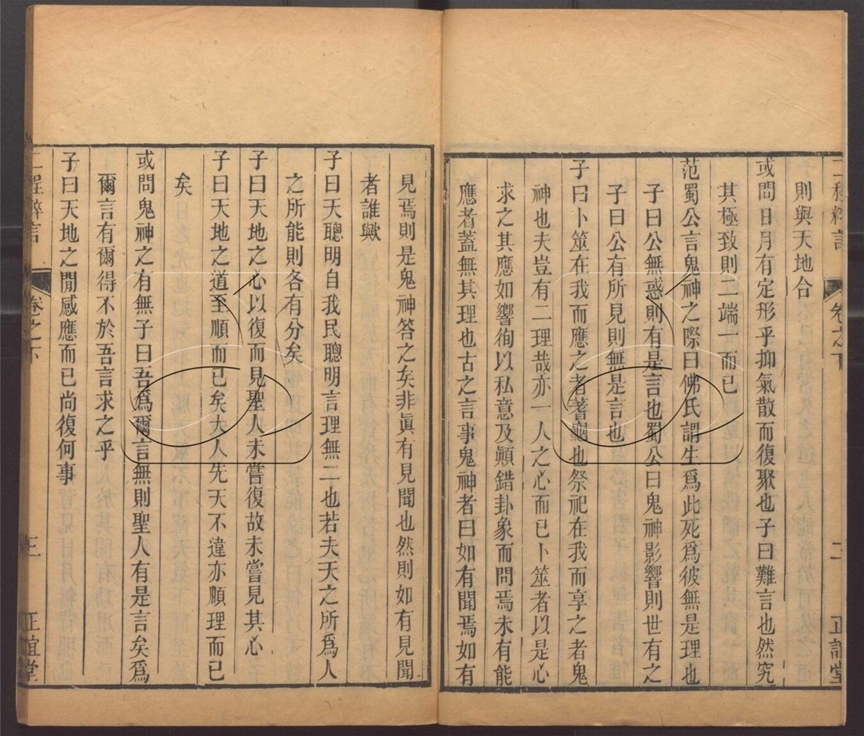 二程粹言 卷之下 二 正誼堂
則與天地合
或問日月有定形乎抑氣散而復聚也子曰難言也然究
其極致則二端一而已
范蜀公言鬼神之際曰佛氏謂生爲此死爲彼無是理也
子曰公無惑則有是言也蜀公曰鬼神影響則世有之
子曰公有所見則無是言也
子曰卜筮在我而應之者蓍龜也祭祀在我而享之者鬼
神也夫豈有二理哉亦一人之心而已卜筮者以是心
求之其應如響徇以私意及顚錯卦象而問焉未有能
應者蓋無其理也古之言事鬼神者曰如有聞焉如有
見焉則是鬼神答之矣非眞有見聞也然則如有見聞
者誰歟
子曰天聰明自我民聰明言理無二也若夫天之所爲人
之所能則各有分矣
子曰天地之心以復而見聖人未嘗復故未嘗見其心
子曰天地之道至順而已矣大人先天不違亦順理而已
矣
或問鬼神之有無子曰吾爲爾言無則聖人有是言矣爲
爾言有爾得不於吾言求之乎
子曰天地之閒感應而已尚復何事
二程粹言 卷之下 三 正誼堂